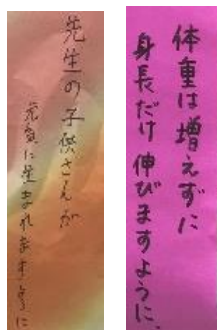 先生の子供さんが
元気に生まれますように
体重は増えずに
身長だけ伸びますように.